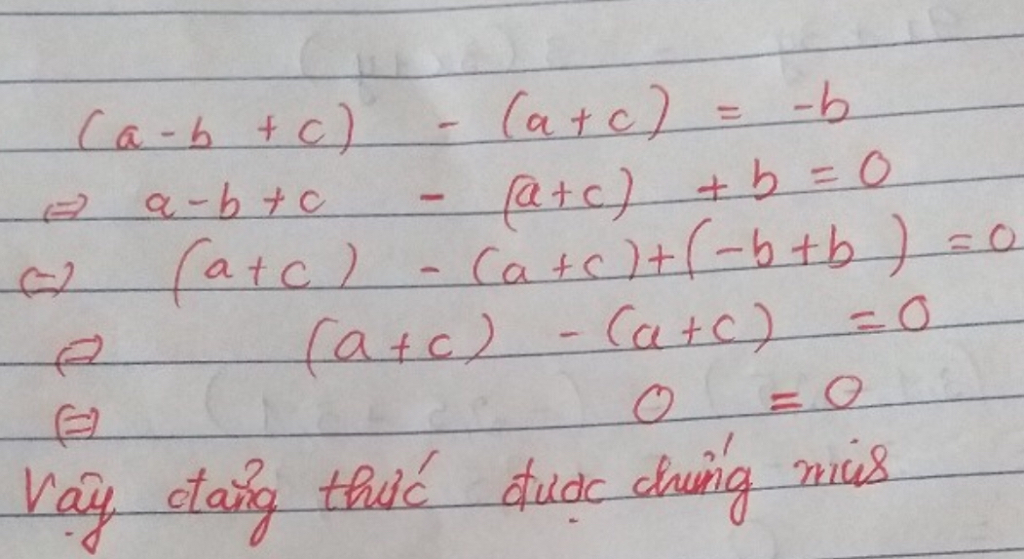 (a-b + c) - (a+c) = -b
⇔ a-b+c - (a+c) + b = 0
⇔ (a+c) - (a+c)+(-b+b) = 0
⇔ (a+c) - (a+c) = 0
⇔ 0 = 0
Vậy đẳng thức được chứng